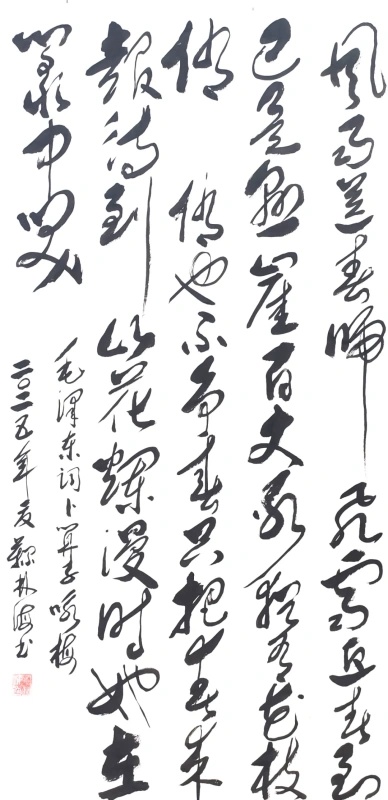 风雨送春归 飞雪迎春到
已是悬崖百丈冰 犹有花枝
俏 俏也不争春只把春来
报待到山花烂漫时她在
丛中笑
毛泽东词卜算子咏梅
二〇二五年夏 林海书